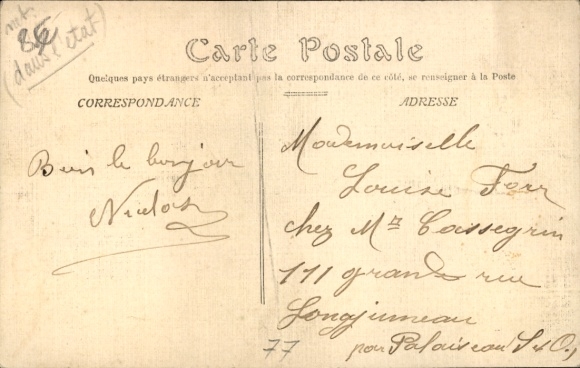 86
(dans l'etat)
Carte Postale
Quelques pays étrangers n'acceptant pas la correspondance de ce côté, se renseigner à la Poste
CORRESPONDANCE
ADRESSE
Bien le bonjour
Mademoiselle
Louise
chez Mr Cassegrin
111 grande rue
Longjumeau
par Palaiseau (S & O)
77